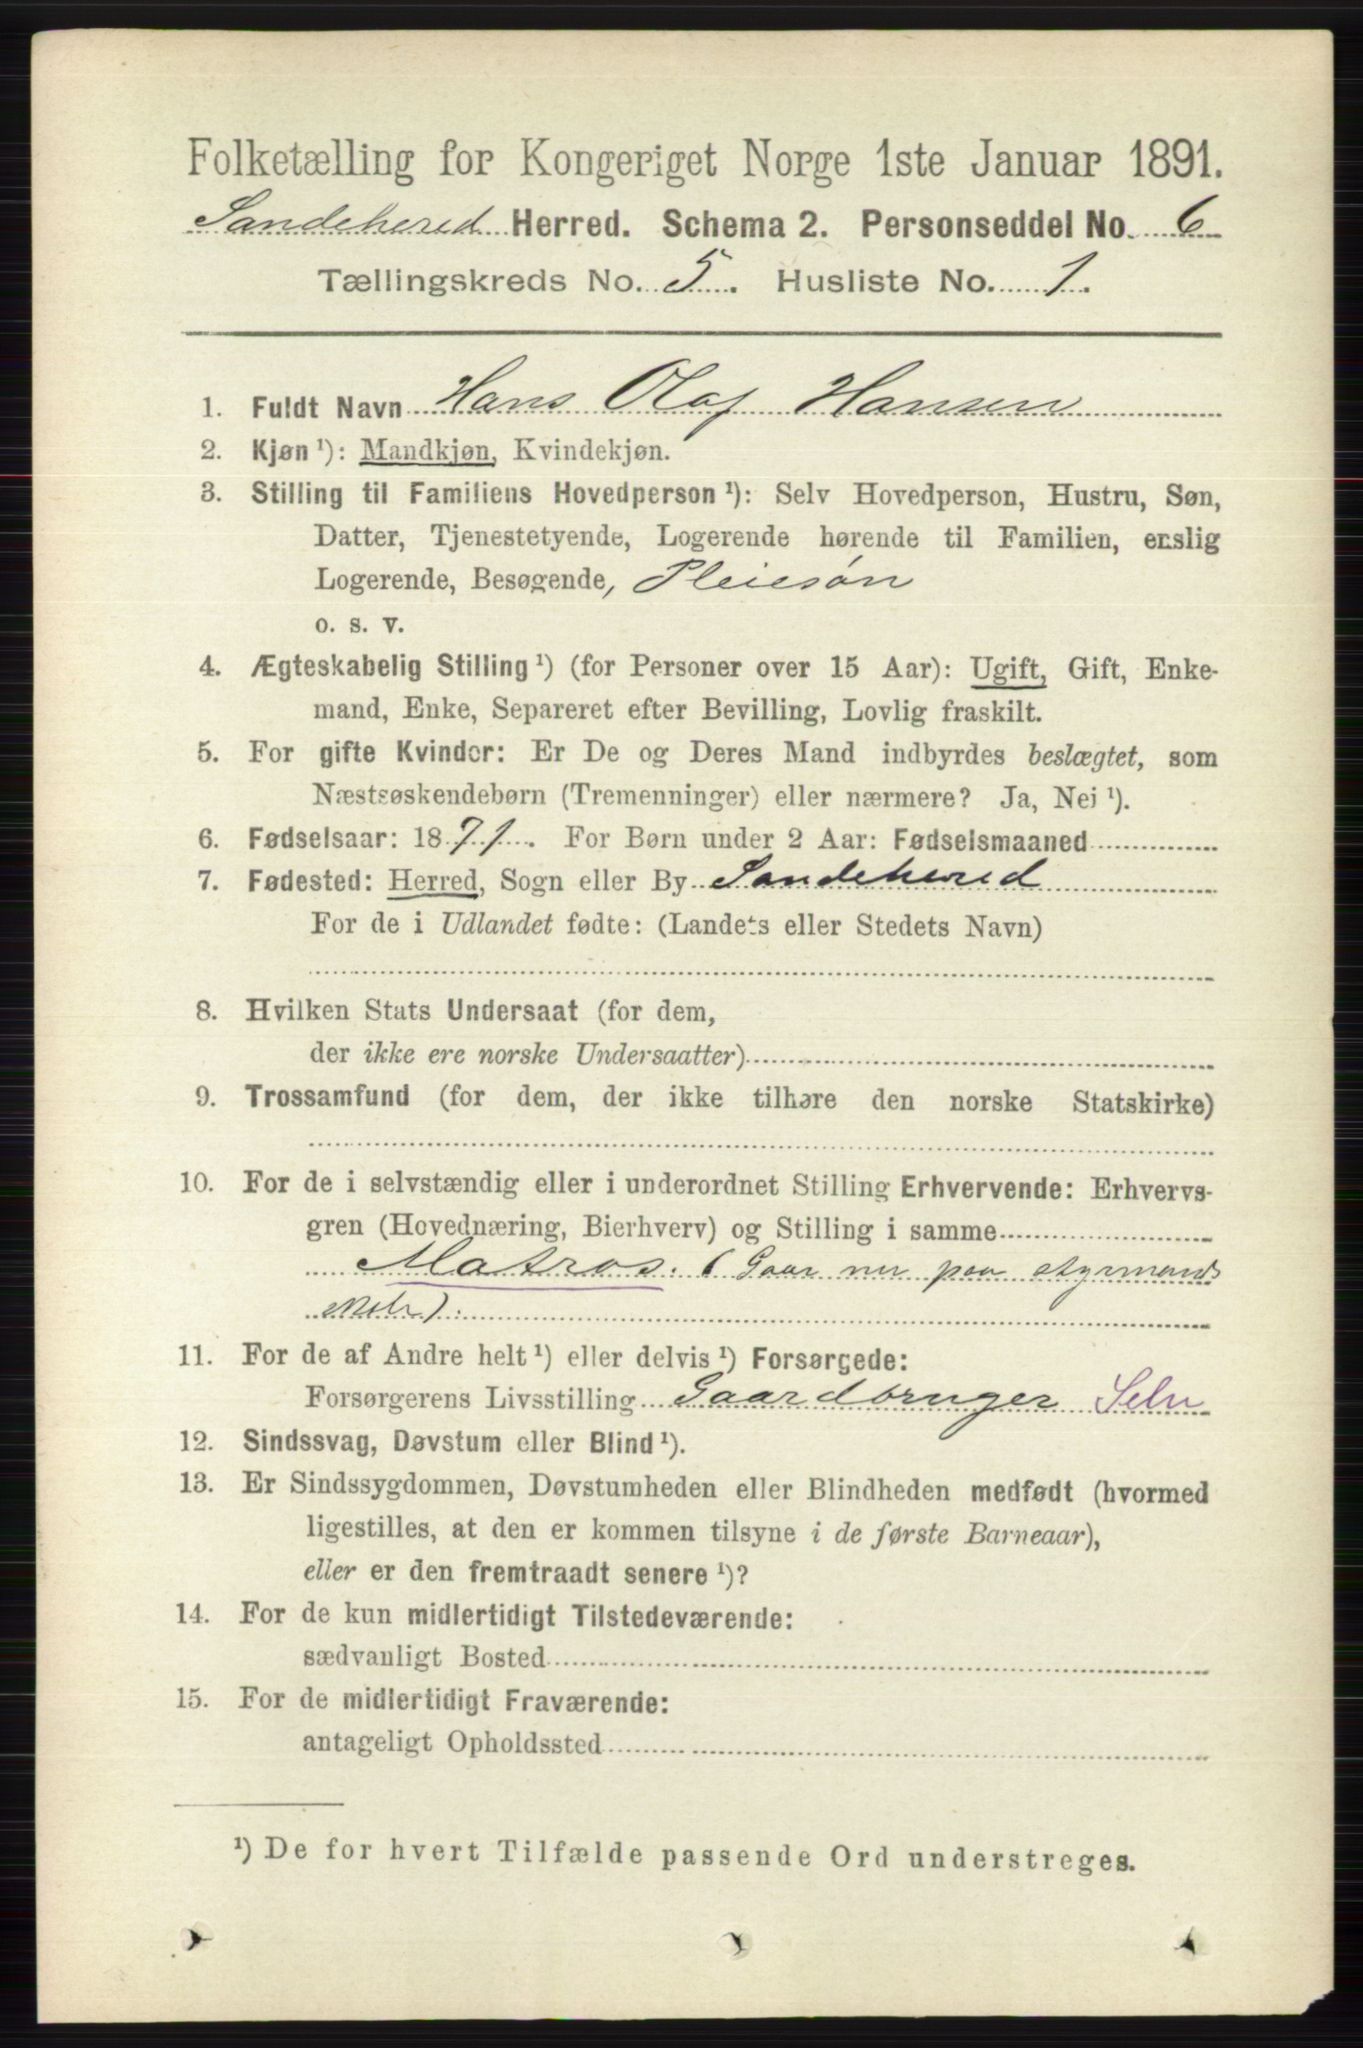 Folketælling for Kongeriget Norge 1ste Januar 1891.
Sandehered Herred. Schema 2. Personseddel No. 6
Tællingskreds No. 5. Husliste No. 1.
1. Fuldt Navn Hans Olaf Hansen
2. Kjøn ¹): Mandkjøn, Kvindekjøn.
3. Stilling til Familiens Hovedperson ¹): Selv Hovedperson, Hustru, Søn,
Datter, Tjenestetyende, Logerende hørende til Familien, enslig
Logerende, Besøgende, Pleiesøn
o. s. v.
4. Ægteskabelig Stilling ¹) (for Personer over 15 Aar): Ugift, Gift, Enke-
mand, Enke, Separeret efter Bevilling, Lovlig fraskilt.
5. For gifte Kvinder: Er De og Deres Mand indbyrdes beslægtet, som
Næstsøskendebørn (Tremenninger) eller nærmere? Ja, Nei ¹).
6. Fødselsaar: 1871. For Børn under 2 Aar: Fødselsmaaned
7. Fødested: Herred, Sogn eller By Sandehered
For de i Udlandet fødte: (Landets eller Stedets Navn)
8. Hvilken Stats Undersaat (for dem,
der ikke ere norske Undersaatter)
9. Trossamfund (for dem, der ikke tilhøre den norske Statskirke)
10. For de i selvstændig eller i underordnet Stilling Erhvervende: Erhvervs-
gren (Hovednæring, Bierhverv) og Stilling i samme
Matros. (Gaar nu paa styrmands
skole).
11. For de af Andre helt ¹) eller delvis ¹) Forsørgede:
Forsørgerens Livsstilling Gaardbruger Selv
12. Sindssvag, Døvstum eller Blind ¹).
13. Er Sindssygdommen, Døvstumheden eller Blindheden medfødt (hvormed
ligestilles, at den er kommen tilsyne i de første Barneaar),
eller er den fremtraadt senere ¹)?
14. For de kun midlertidigt Tilstedeværende:
sædvanligt Bosted
15. For de midlertidigt Fraværende:
antageligt Opholdssted
¹) De for hvert Tilfælde passende Ord understreges.